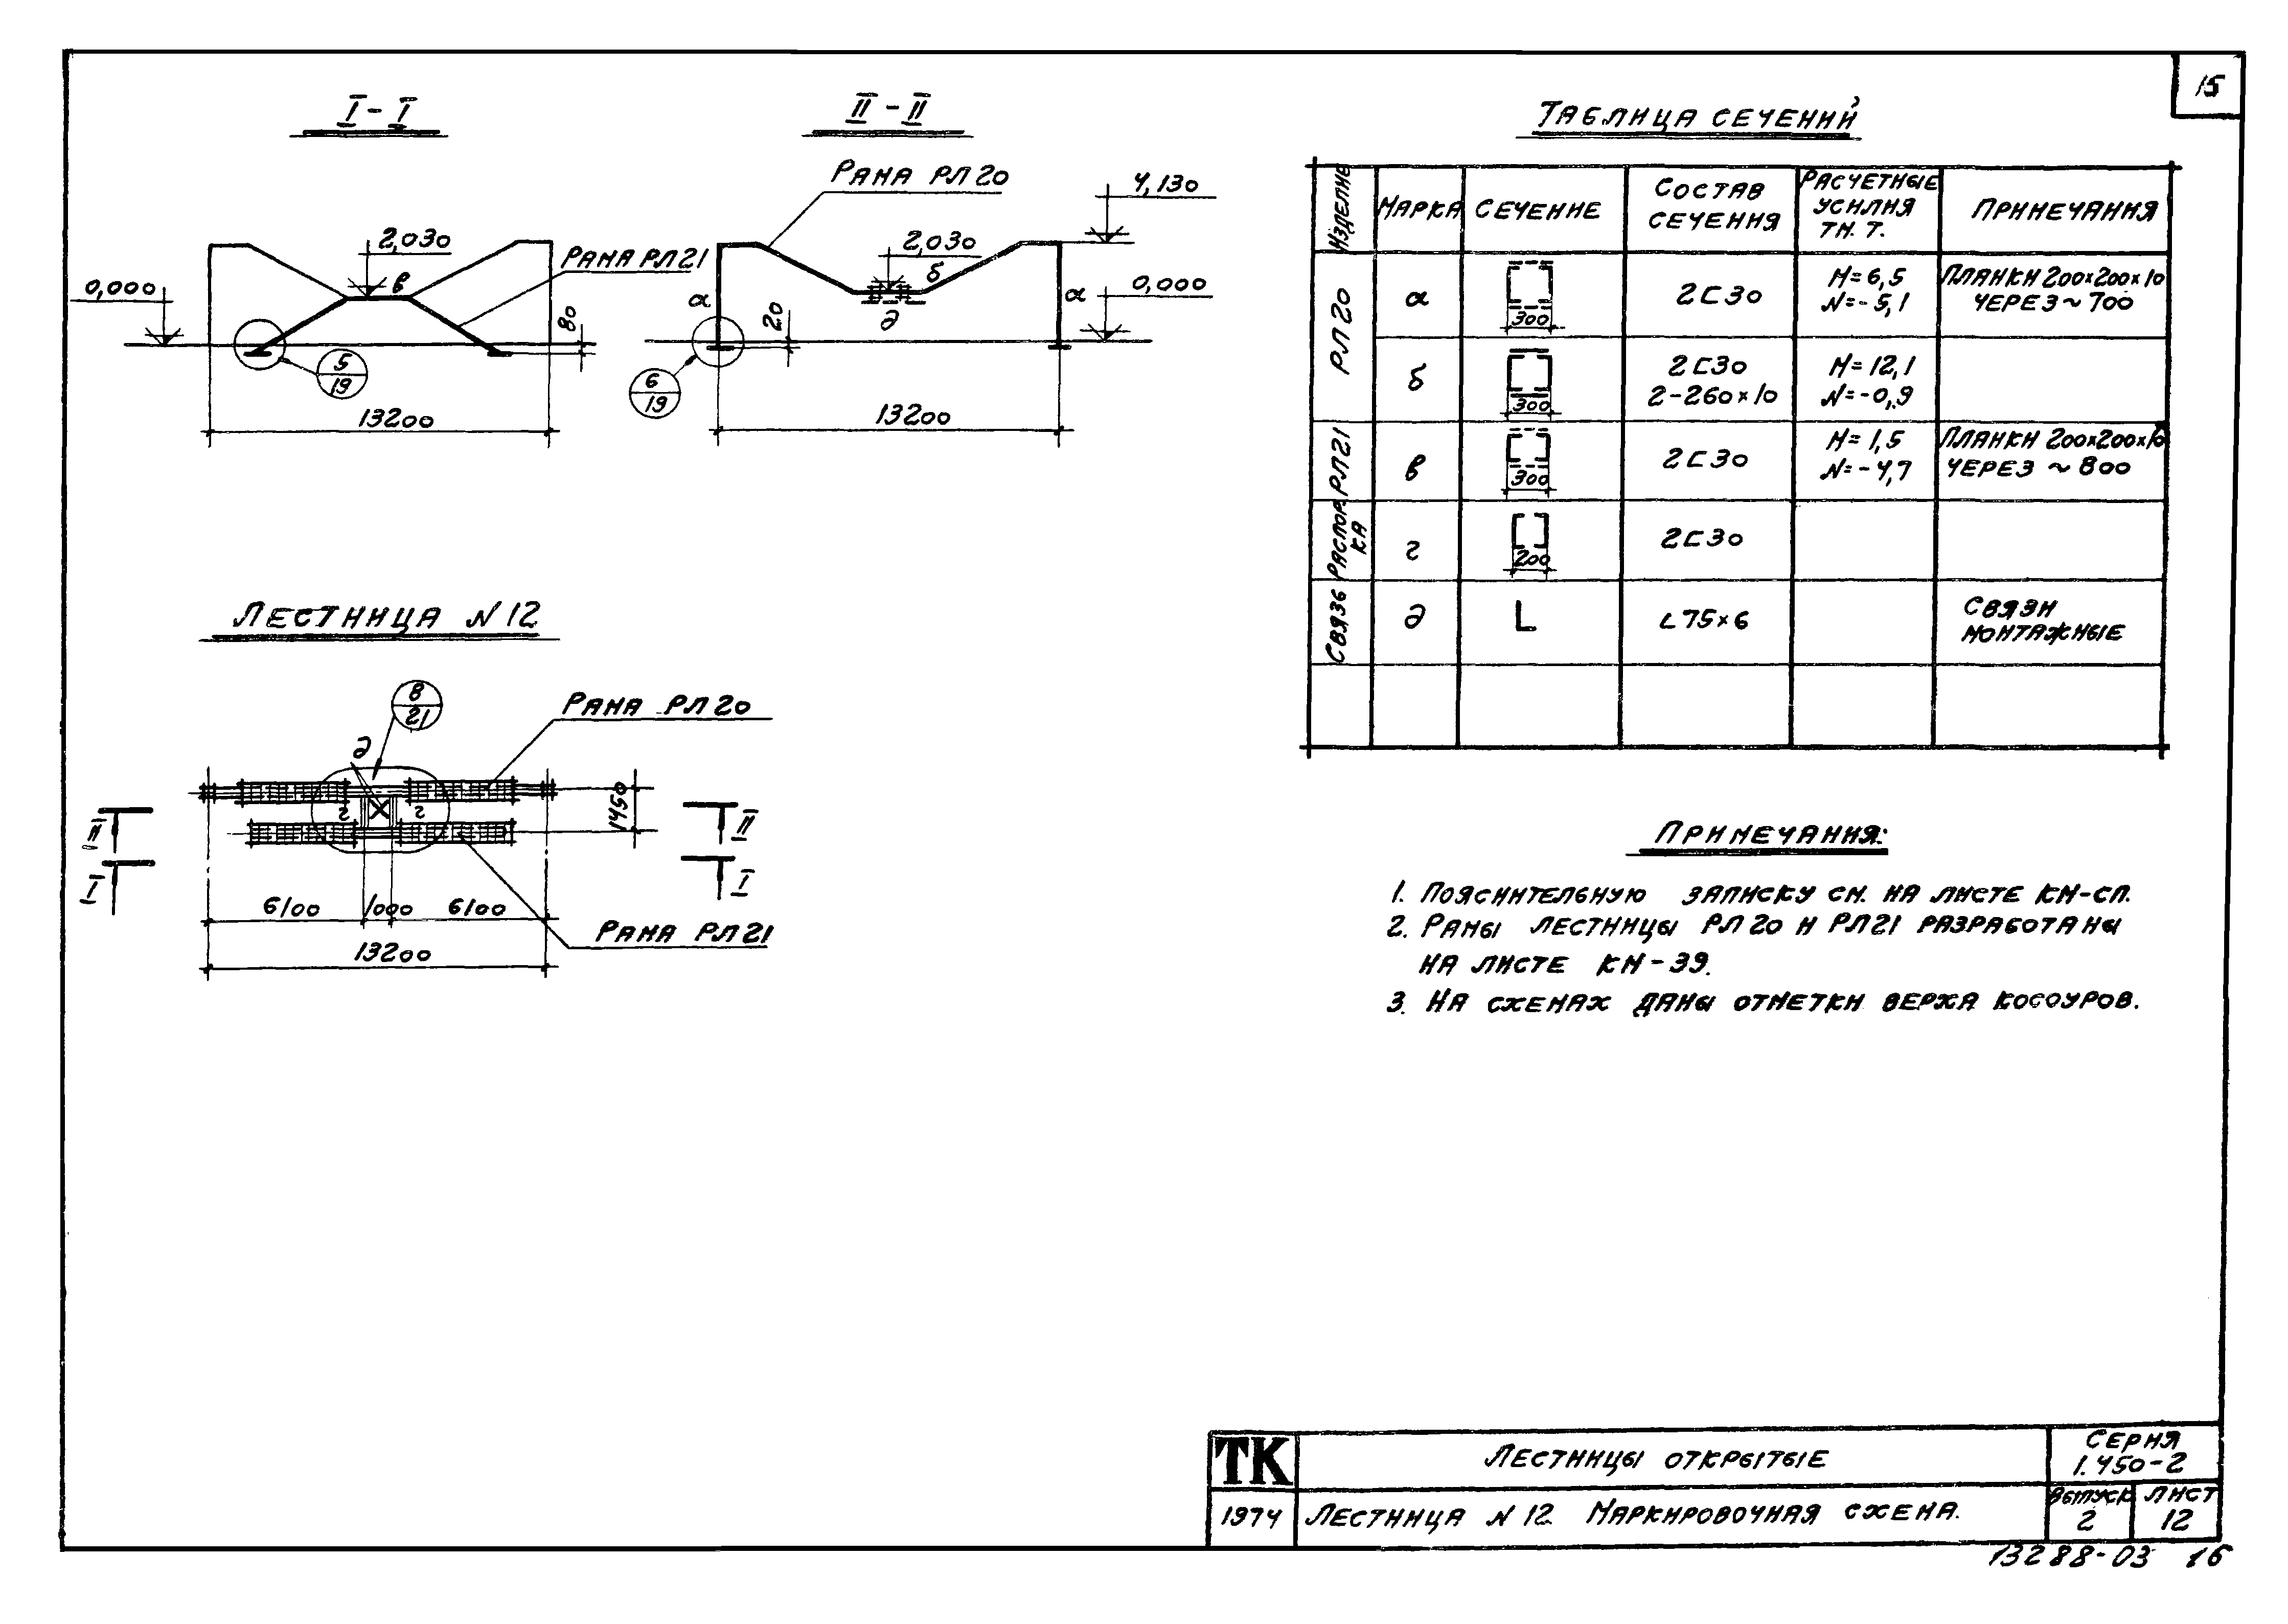 15
I - I
2,030
в
Рама РЛ21
0,000
80
5
19
13200
II - II
Рама РЛ20
4,130
2,030
б
а
д
а
0,000
20
6
19
13200
Лестница N12
8
21
Рама РЛ20
д
г
г
1450
II
II
I
I
6100 1000 6100
Рама РЛ21
13200
Таблица сечений
Изделие
Марка
Сечение
Состав
сечения
Расчетные
усилия
тм. т.
Примечания
РЛ20
а
300
2⊏30
М=6,5
N=-5,1
Планки 200×200×10
через ~700
б
300
2⊏30
2-260×10
М=12,1
N=-0,9
РЛ21
в
300
2⊏30
М=1,5
N=-4,7
Планки 200×200×10
через ~800
Распор-
ка
г
200
2⊏30
Связь
д
L
L75×6
Связи
монтажные
Примечания:
1. Пояснительную записку см. на листе КМ-СП.
2. Рамы лестницы РЛ20 и РЛ21 разработаны
на листе КМ-39.
3. На схемах даны отметки верха косоуров.
ТК
Лестницы открытые
Серия
1.450-2
1974
Лестница N12. Маркировочная схема.
Выпуск
2
Лист
12
13288-03 16